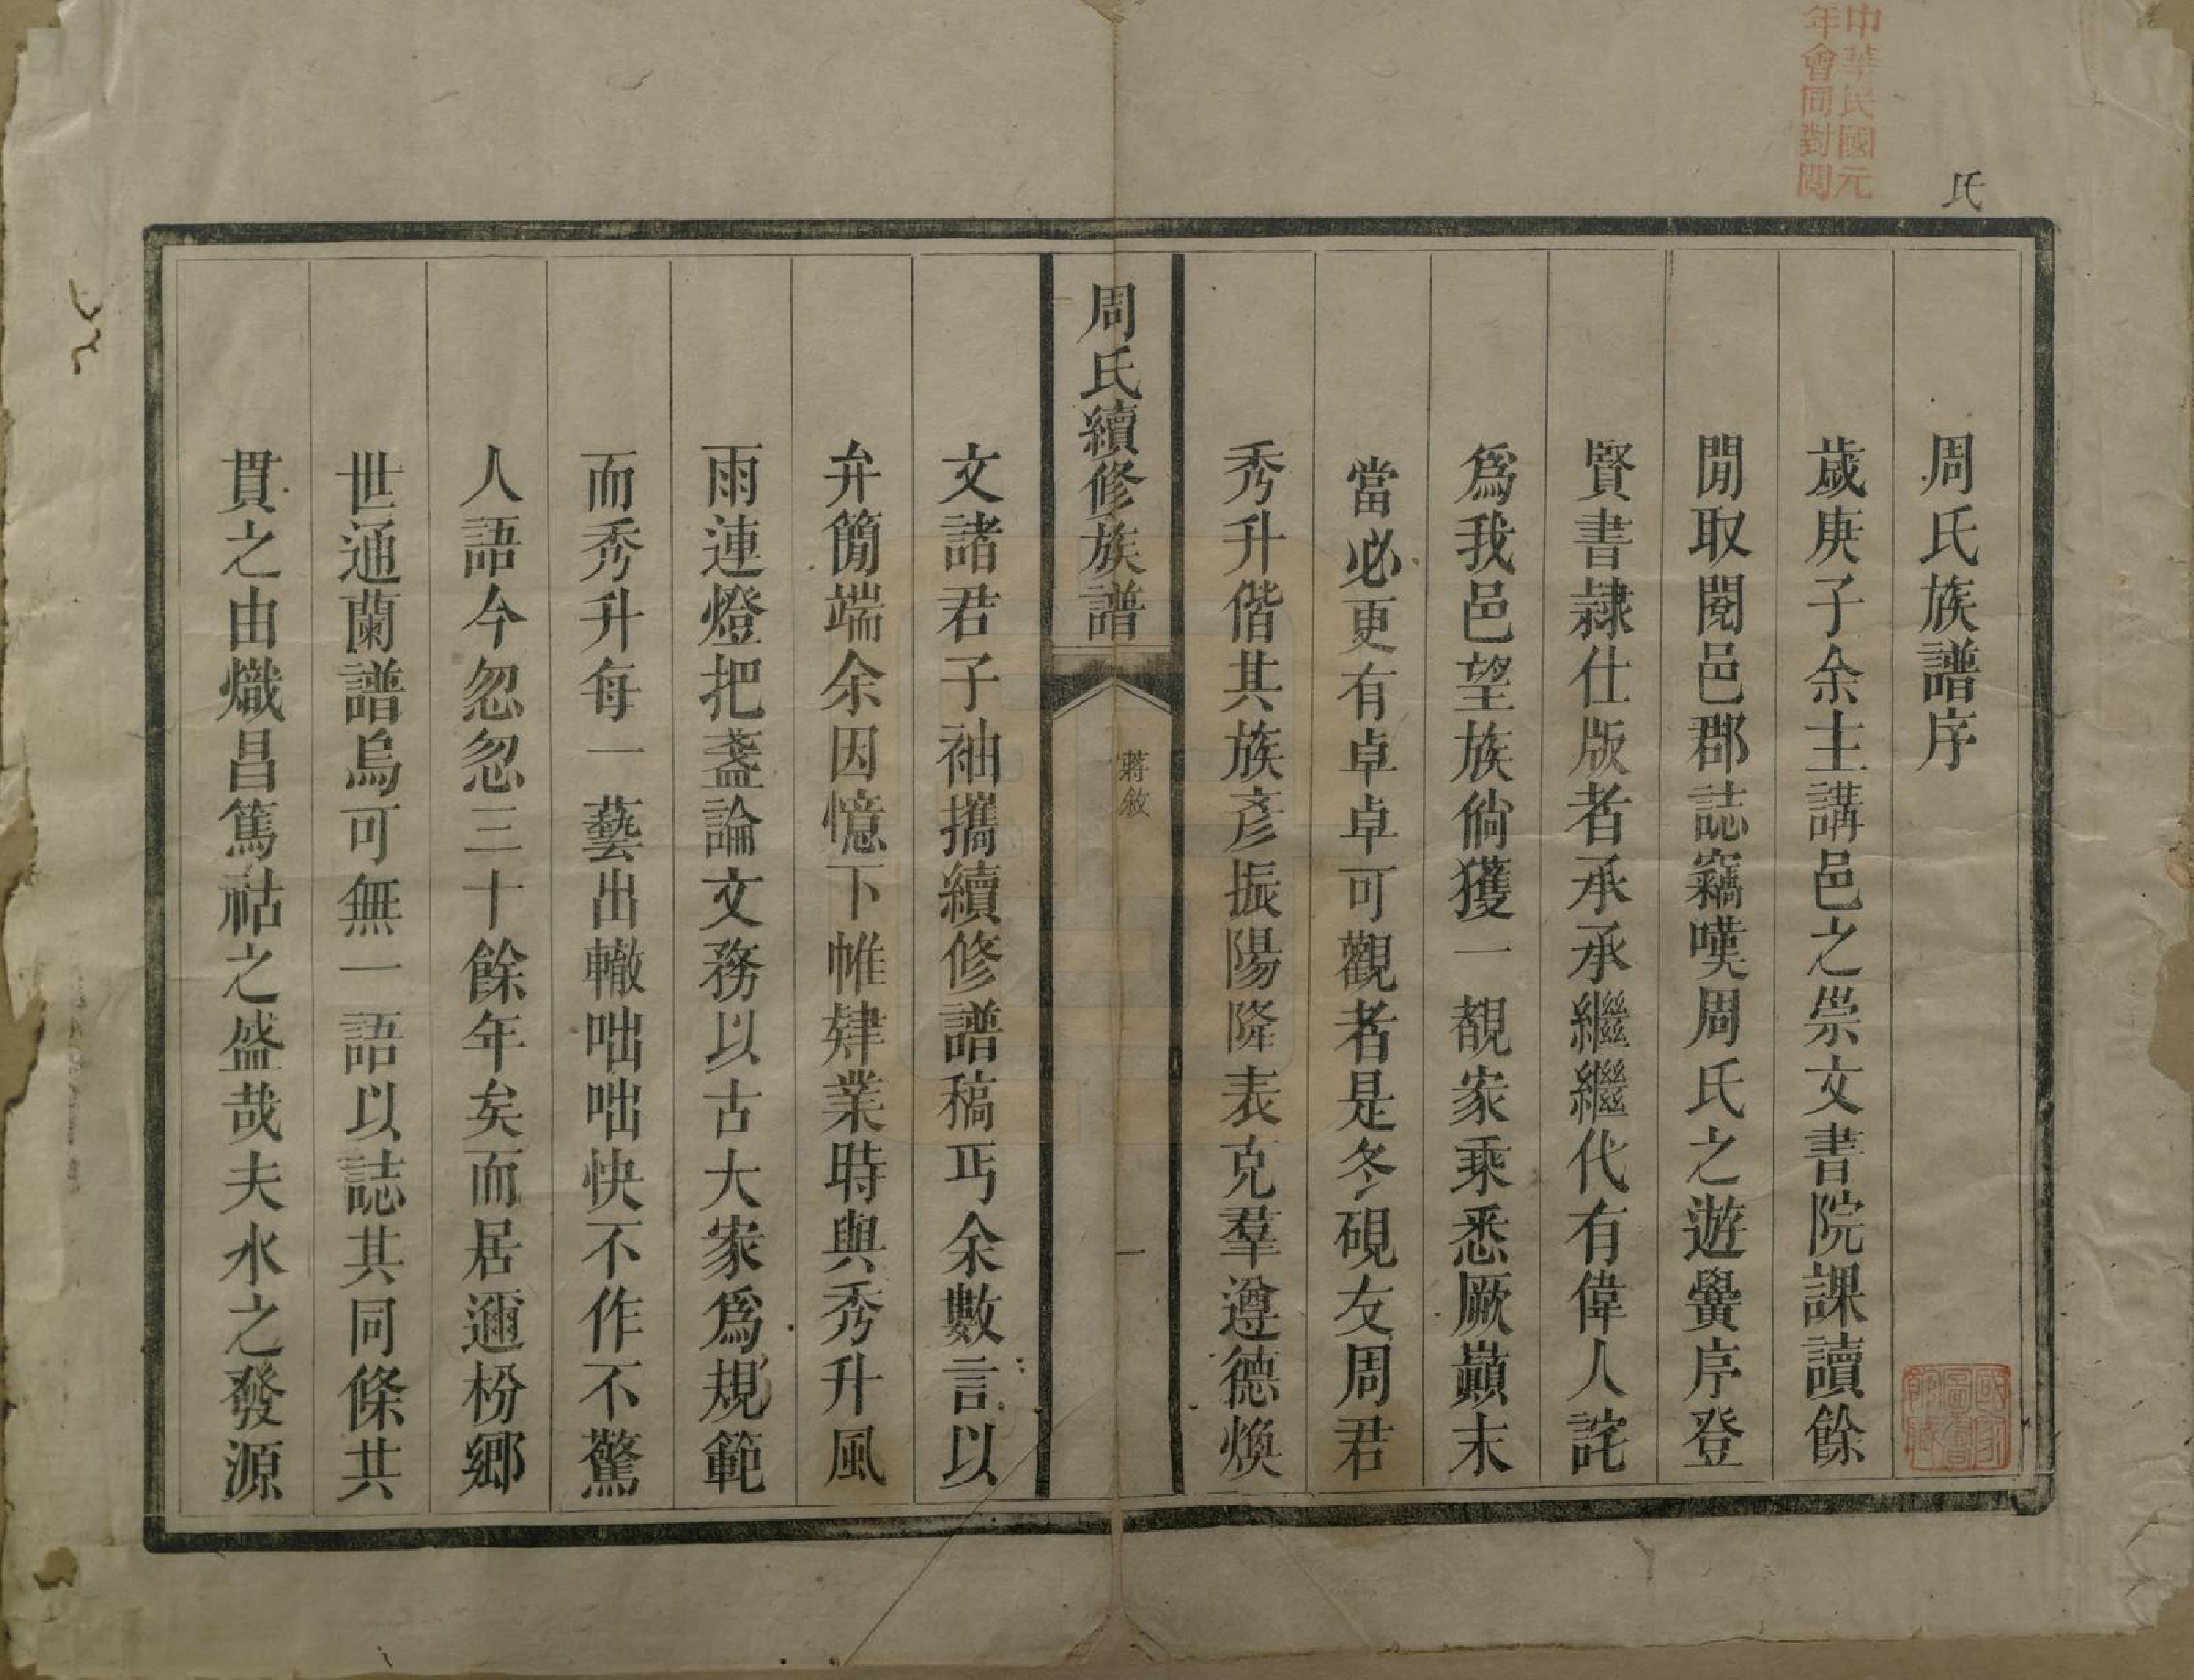 中華民國元
年會同對閲
氏
周氏族譜序
歲庚子余主講邑之崇文書院課讀餘
閒取閱邑郡誌竊嘆周氏之遊黌序登
賢書隷仕版者承承繼繼代有偉人詫
爲我邑望族倘獲一覩家乘悉厥巔末
當必更有卓卓可觀者是冬硯友周君
秀升偕其族彥振陽降表克羣遵德煥
周氏續修族譜
蔣敘
一
文諸君子袖攜續修譜稿丐余數言以
弁簡端余因憶下帷肄業時與秀升風
雨連燈把盞論文務以古大家爲規範
而秀升每一藝出轍咄咄快不作不驚
人語今忽忽三十餘年矣而居邇枌鄉
世通蘭譜烏可無一語以誌其同條共
貫之由熾昌篤祜之盛哉夫水之發源